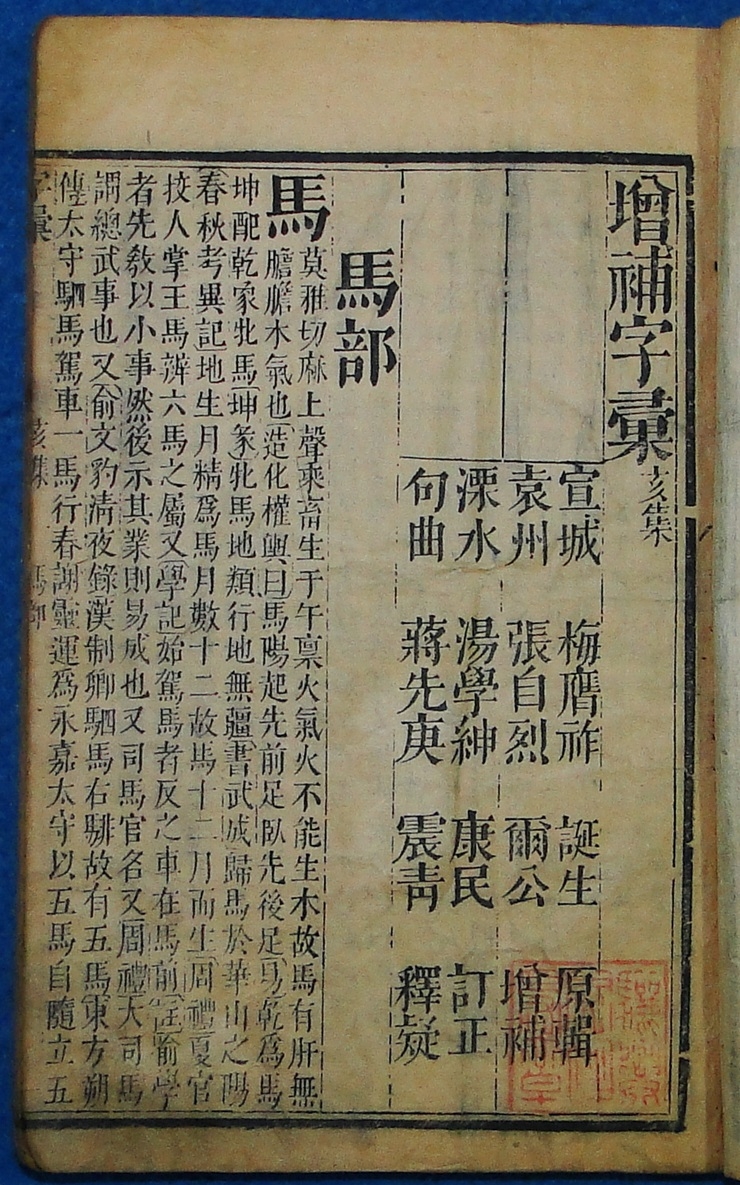 增補字彙亥集
宣城 梅膺祚 誕生 原輯
袁州 張自烈 爾公 增補
溧水 湯學紳 康民 訂正
句曲 蔣先庚 震青 釋疑
馬部
馬 莫雅切麻上聲乘畜生于午禀火氣火不能生木故馬有肝無
膽膽木氣也造化權輿曰馬陽起先前足臥先後足易乾爲馬
坤配乾象牝馬坤彖牝馬地類行地無疆書武成歸馬於華山之陽
春秋考異記地生月精爲馬月數十二故馬十二月而生周禮夏官
挍人掌王馬辨六馬之屬又學記始駕馬者反之車在馬前註喻學
者先敎以小事然後示其業則易成也又司馬官名又周禮大司馬
謂總武事也又俞文豹清夜錄漢制卿駟馬右騑故有五馬東方朔
傳太守駟馬駕車一馬行春謝靈運爲永嘉太守以五馬自隨立五
字彙 亥集 馬部